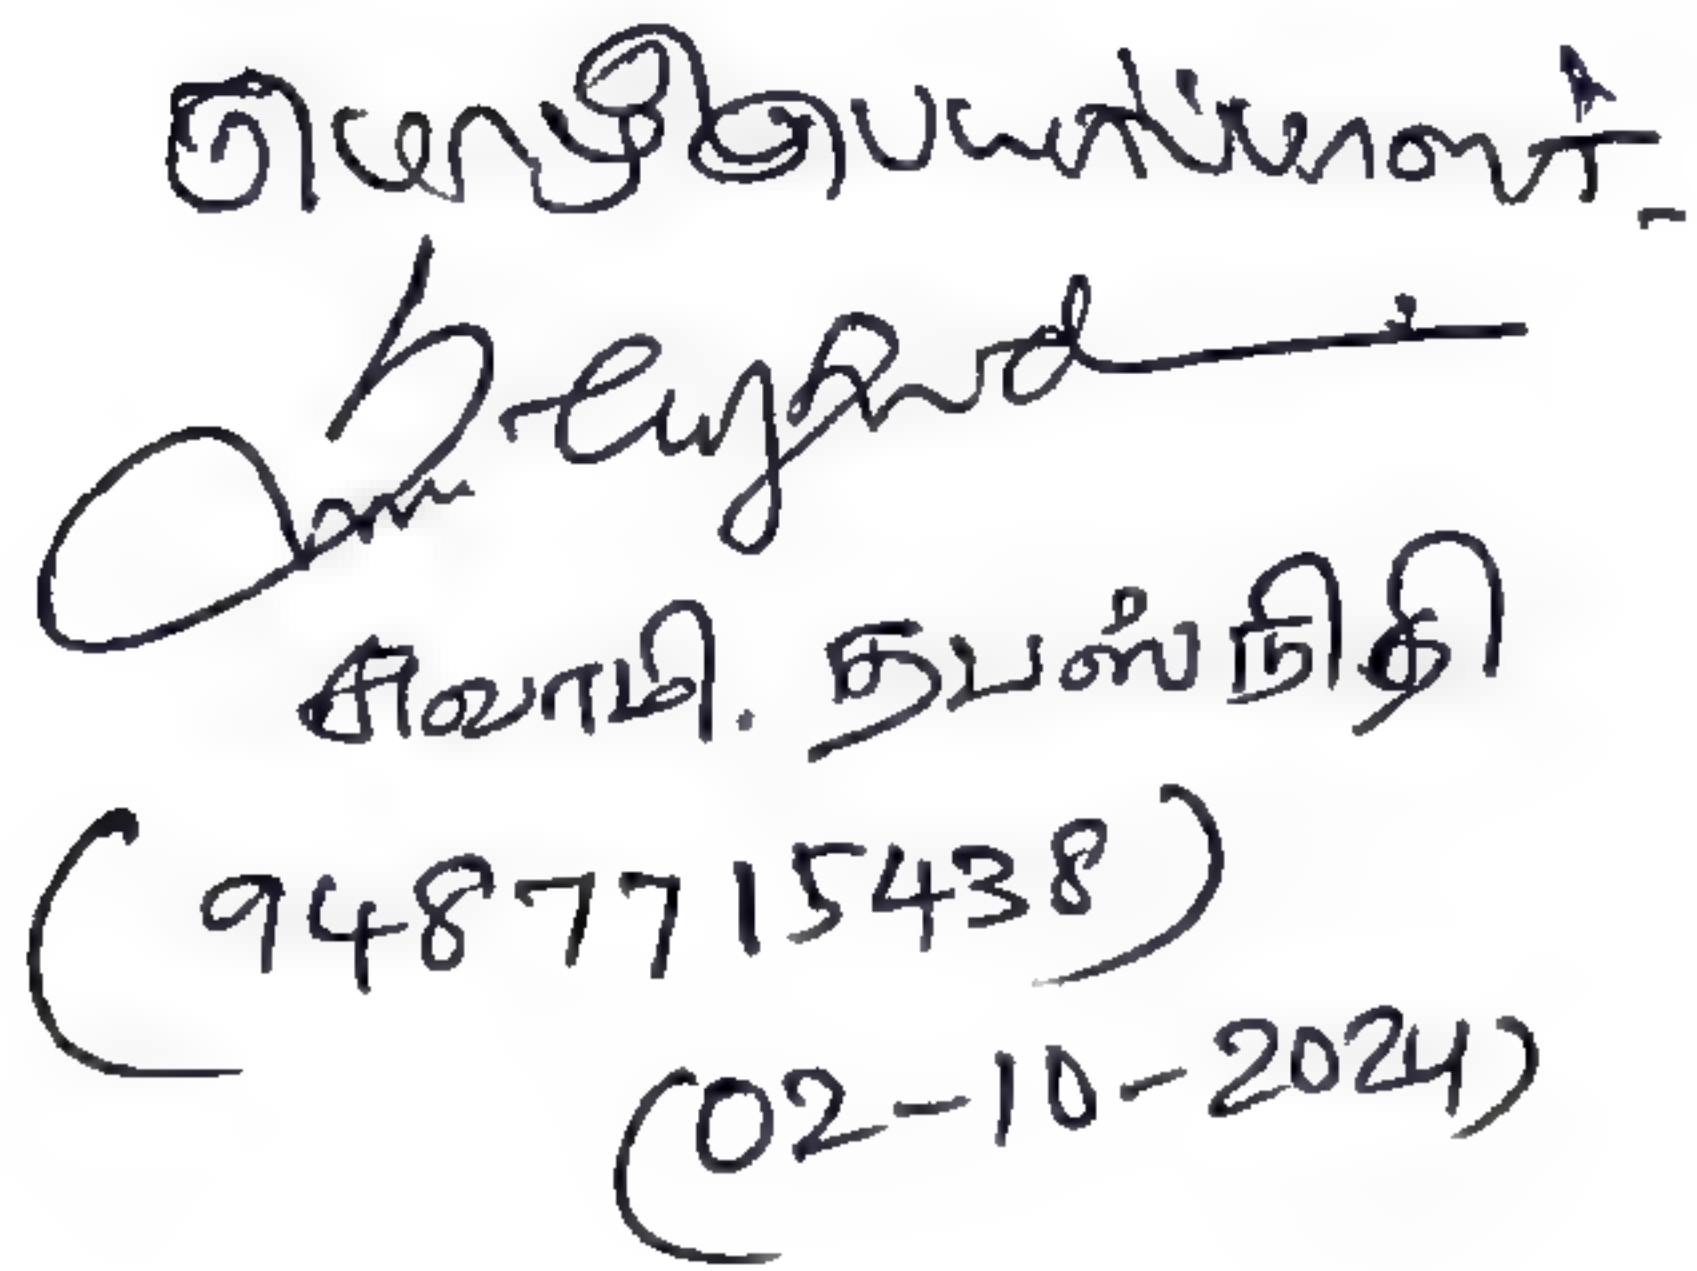 மொழிபெயர்ப்பாளர்
சுவாமி. தபஸ்நிதி
(9487715438)
(02-10-2024)